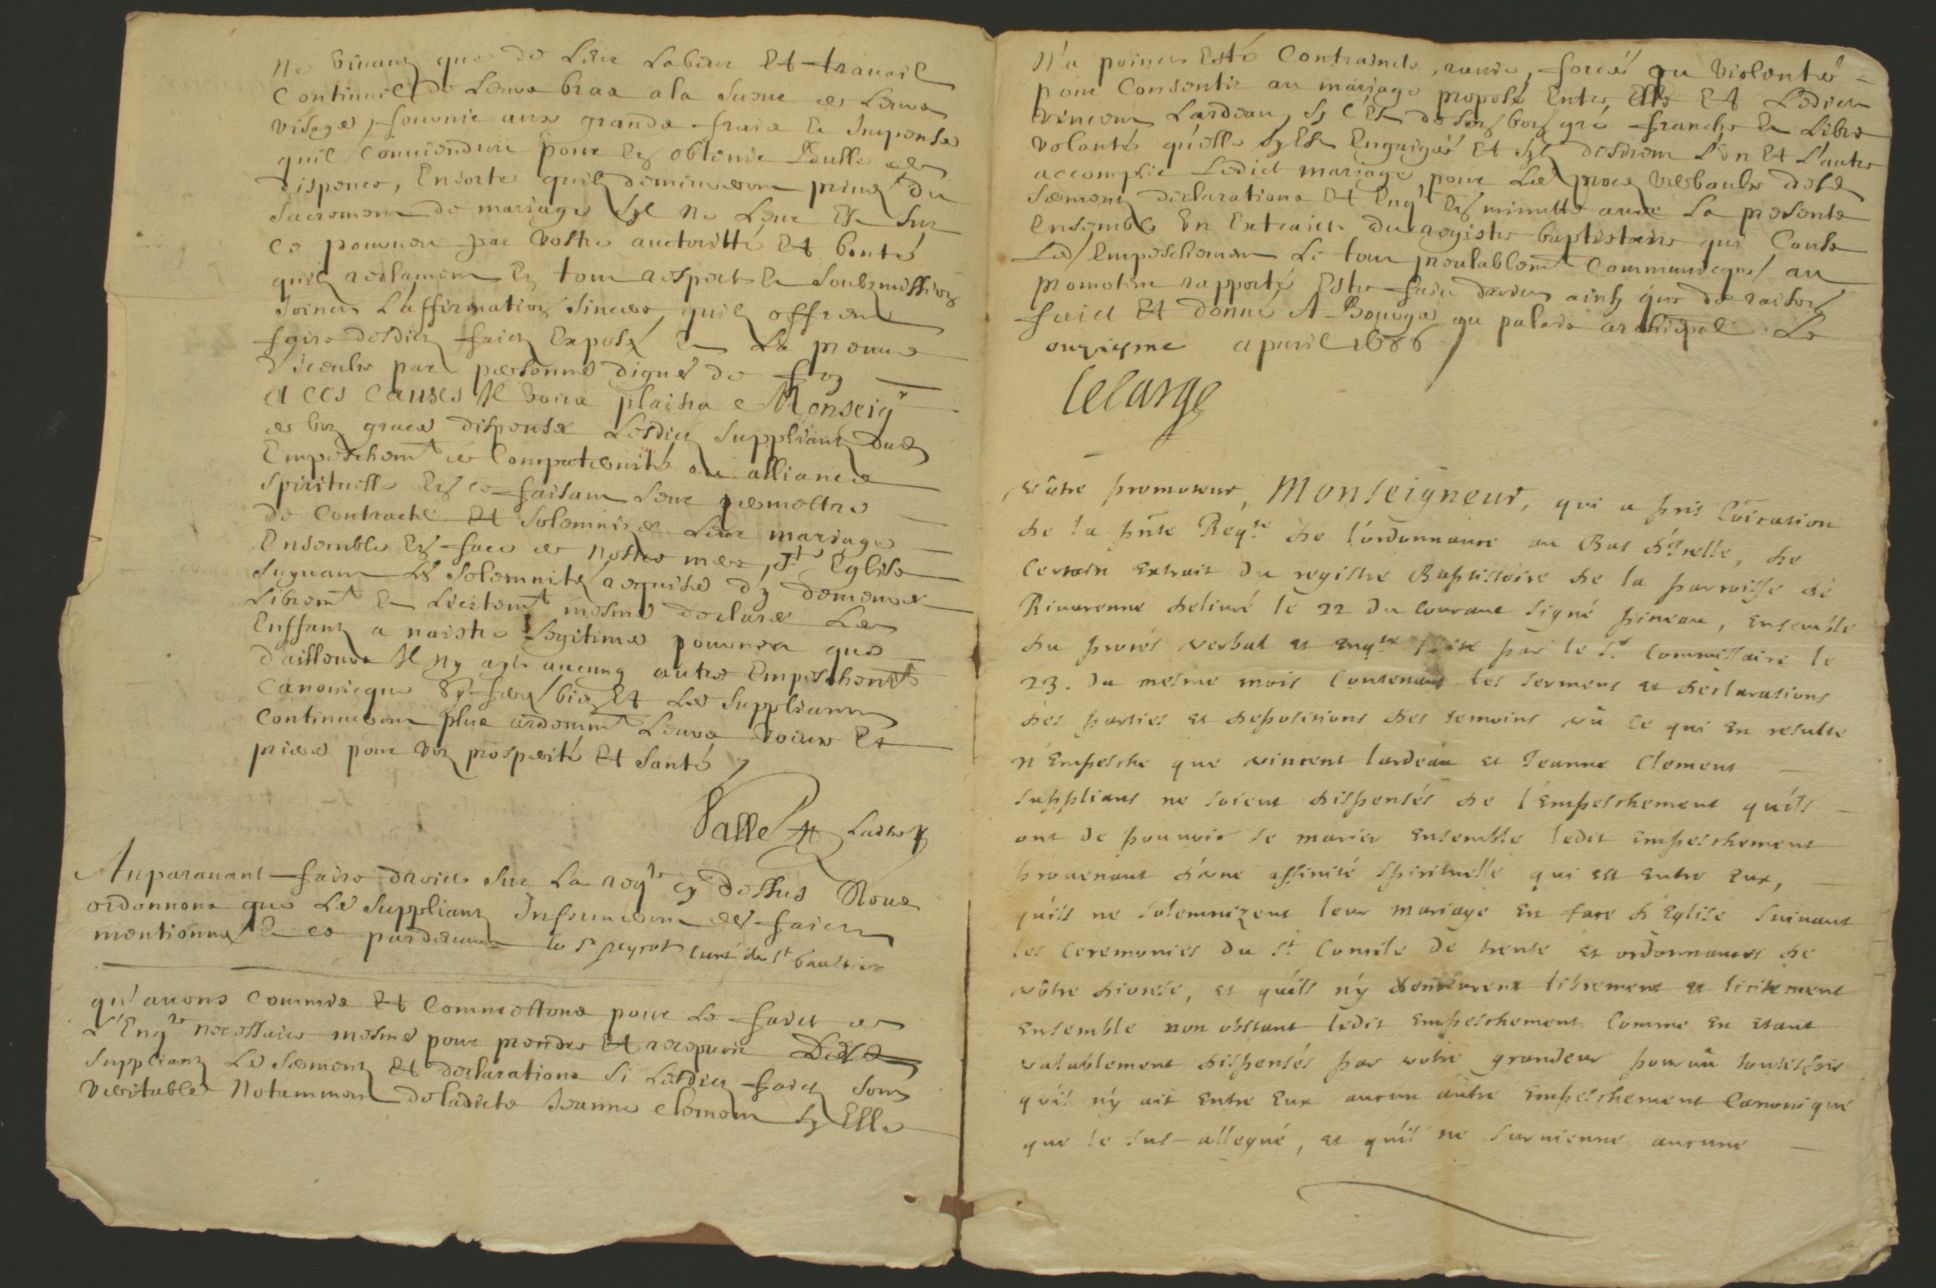 ne vivant que de leur labeur et travail
continuel de leurs bras a la sueur de leurs
visage, fournir aux grands frais et Impense
quil conviendroit pour en obtenir bulle de
dispence, Ensorte quilz demeureront privez du
sacrement de mariage syl ne leur est sur
ce pourveu par vostre auctoritté et bonté
quilz reclament en tout respect et soubzmission
Joinct l'affirmation sincere, quilz offrent
faire desdictz faictz Exposéz et la preuve
d'iceulx par personnes dignes de foy
A ces causes Il vous plaise Monseigr
de voz graces dispenser Lesdictz suppliantz dud
Empeschemt de Compaternité ou alliance
spirituelle En ce faisant leur permettre
de Contracter et solemniser leur mariage
Ensemble En face de nostre mere Ste Eglise
suyvant les solemnitez requises d'y demeurer
Libremt et Licitemt mesme declarer les
Enffantz a naistre legitimes pourveu que
d'ailleurs Il ny ayt aucung autre Empeschemt
Canonicque Sy ferez bien Et Les suppliantz
continueront plus ardemmt Leurs voeux Et
prieres pour voz prosperité Et santé
Valle
Auparavant faire droict sur La reqte cy dessus Nous
ordonnons que les suppliantz Informeront des faictz
mentionnez en ce pardevant le Sr peyrot curé de St Gaultier
qu'avons commis Et Commettons pour le faict de
L'Enqte necessaire mesme pour prendre Et recepvoir Desd
suppliantz Les sermentz Et declarations si Lesdictz faictz sont
veritables Notamment de ladicte Jeanne Clement sy Elle
N'a poinct Esté Contraincte, ravie, forcé ou violenté
pour Consentir au mariage proposé Entre Elle Et Ledict
Vincent Lardeau, sy c'est de son bon gré franche et Libre
volonté qu'elle sy est Engaigée Et syl desirent L'un Et L'autre
accomplir Ledict mariage pour Les proces verbaulx desd
serment declarations Et Enqte En minutte avec La presente
Ensemble Un Extraict du registre baptistaire qui Cause
Led Empeschement Le tout prealablemt Communicqué au
promoteur rapporté Estre faict droict ainsy que de raison
faict Et donné A Bourges au palais archiepal Le
onziesme apvril 1686
Lelarge
vôtre promoteur, Monseigneur, qui a pris Co̅ication
de la pñte Reqte de l'ordonnance au Bas d'jcelle, de
Certain extrait du registre Baptistoire de la parroisse de
Rivarenne delivré le 22 du Courant signé pineau, ensemble
du procés verbal et enqte faite par le Sr Commissaire le
23. du mesme mois Contenant les serments et declarations
des parties et depositions des temoins vû ce qui en resulte
n'Empesche que vincent lardeau et Jeanne Clement
supplians ne soient dispensés de l'Empeschement qu'ils
ont de pouvoir se marier ensemble ledit empeschement
provenant d'une affinité spirituelle qui est entre Eux,
qu'ils ne solemnizent leur mariage en face d'Eglise suivant
les ceremonies du St Concile de trente et ordonnances de
vôtre dioceze, et qu'ils n'y demeurent librement et licitement
ensemble non obstant ledit empeschement Comme en etant
valablement dispensés par votre grandeur pourvû toutesfois
qu'il n'y ait entre Eux aucun autre Empeschement Canonique
que le sus-allegué, et qu'il ne survienne aucune